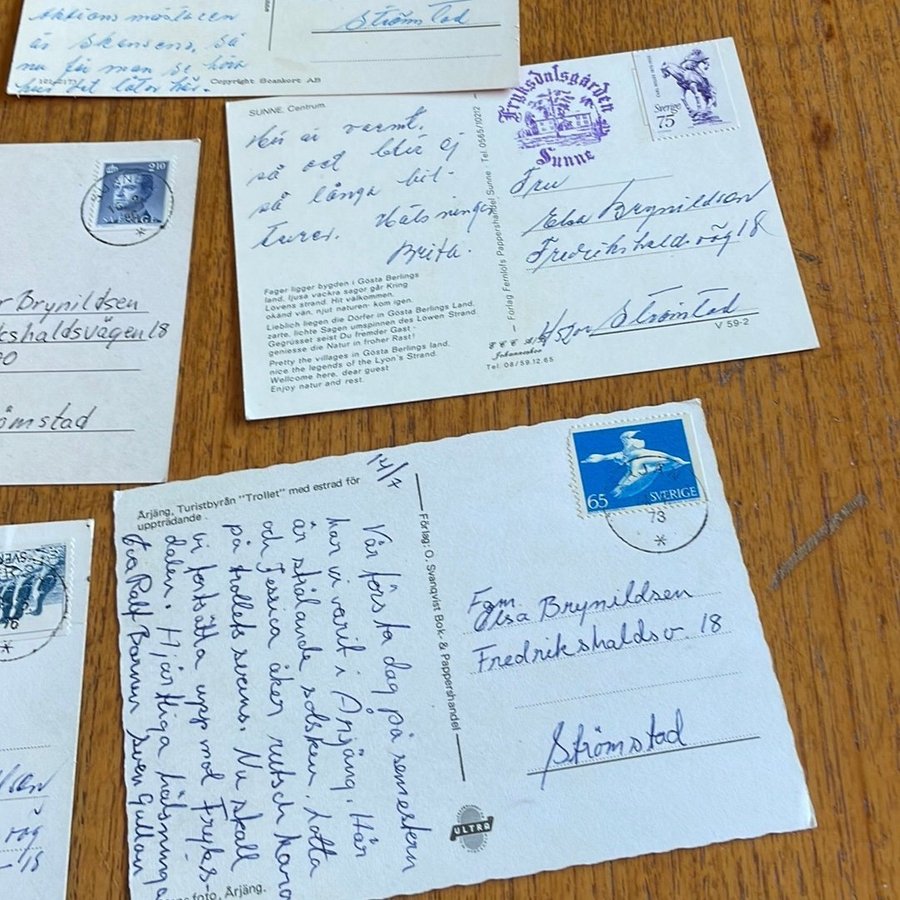 aktions mästaren
är Skansens, så
nu får man se hora
hur det låter här.
Copyright Scankort AB
Strömstad
210
SVERIGE
r Brynildsen
kshaldsvägen 18
ömstad
SUNNE. Centrum
Hei är varmt,
så det blir ej
så långa bil-
turer. Hälsningar
Brita.
Fager ligger bygden i Gösta Berlings
land, ljusa vackra sagor går Kring
Lovens strand. Hit välkommen,
okänd vän, njut naturen: kom igen.
Lieblich liegen die Dörfer in Gösta Berlings Land,
zarte, lichte Sagen umspinnen des Löwen Strand
Gegrüsset seist Du fremder Gast
geniesse die Natur in froher Rast!
Pretty the villages in Gösta Berlings land,
nice the legends of the Lyon's Strand.
Wellcome here, dear guest
Enjoy natur and rest.
Förlag Fernlöfs Pappershandel Sunne - Tel. 0565/10212
Fryksdalsgården
Sunne
Sverige
75
Fru
Elsa Brynildsen
Fredrikshaldsväg 18
Strömstad
V 59-2
Johanneshov
Tel. 08/59.12.65
Årjäng, Turistbyrån "Trollet" med estrad för
uppträdande
14/7
Vår första dag på semestern
har vi varit i Årjäng. Här
är strålande solsken. Lotta
och Jessica åker rutschkana
på trollets svans. Nu skall
vi fortsätta upp mot Fryks-
dalen. Hjärtliga hälsningar
fra Ralf Barnen Sven Gullan
foto, Årjäng.
Förlag: O. Svanqvist Bok- & Pappershandel
ULTRA
65
SVERIGE
73
Fam.
Elsa Brynildsen
Fredrikshaldsv. 18
Strömstad
väg